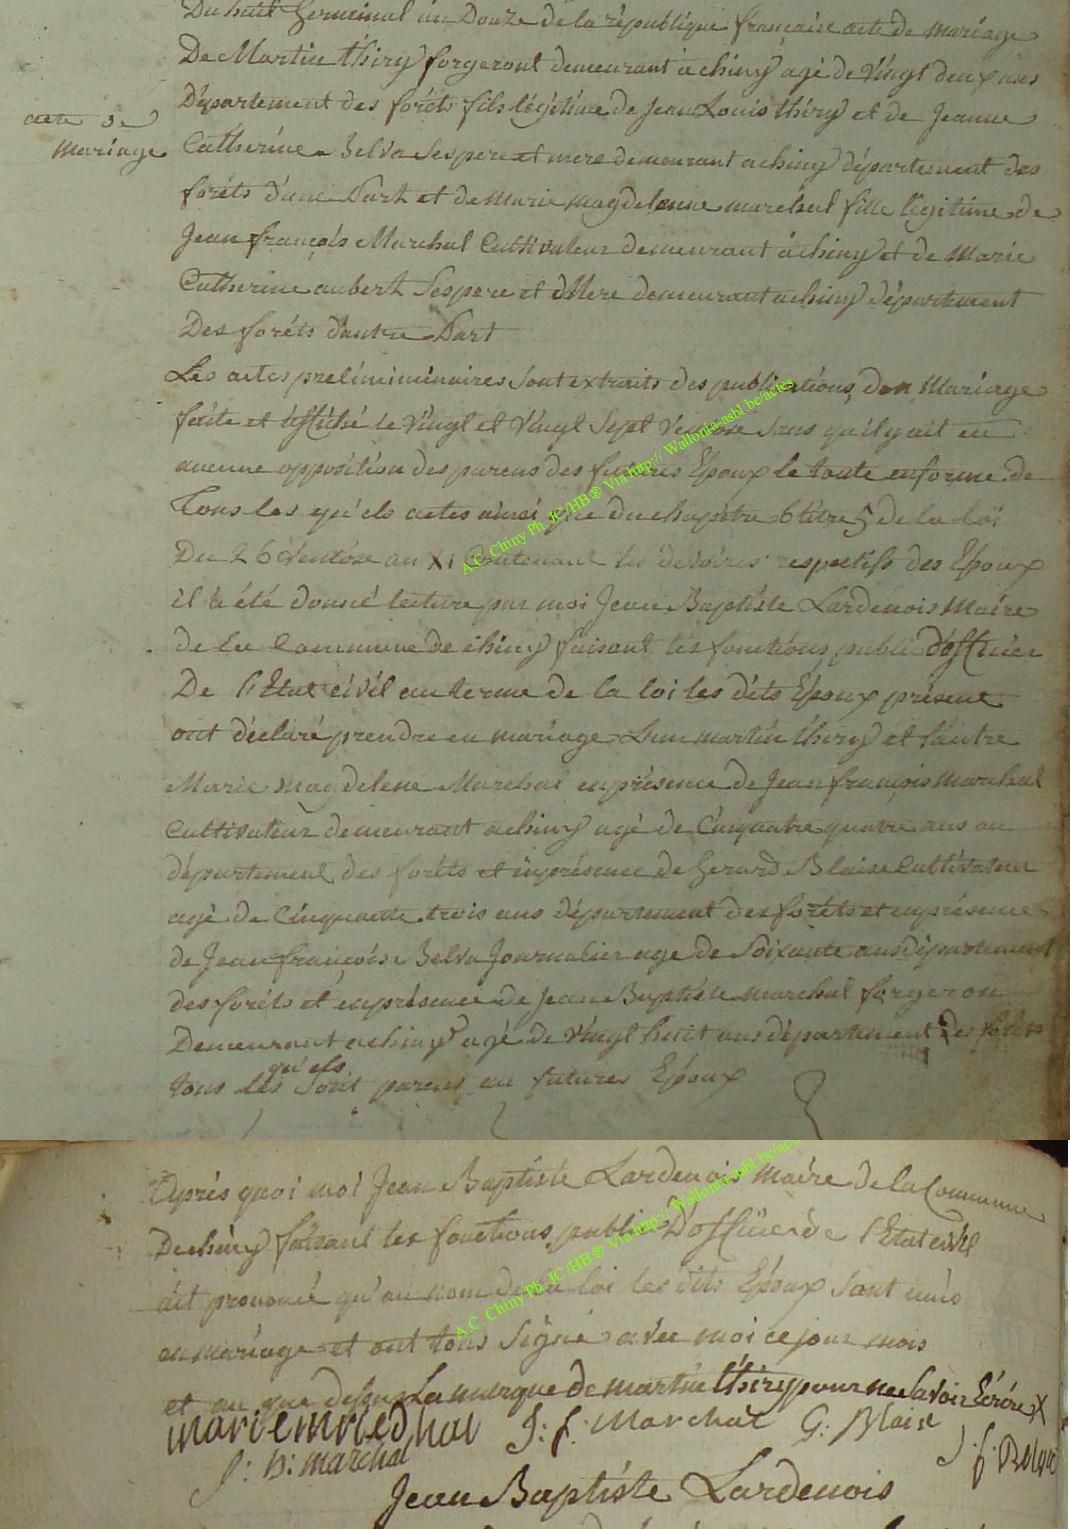 Du huit Germinal an Douze de la république française acte de mariage
De Martin thiry forgeront demeurant à chiny agé de vingt deux ans
Département des foréts fils légitime de Jean Louis thiry et de Jeanne
acte de
mariage
Catherine Belva Ses pere et mere demeurant a chiny département des
foréts d'une Part et de marie magdelenne marchal fille légitime de
Jean françois Marchal Cultivateur demeurant à chiny et de Marie
Catherine aubert Ses pere et Mere demeurant a chiny département
Des foréts d'autre Part
Les actes prelimiminaires Sont extraits des publications de Mariage
faite et affiché le vingt et vingt Sept ventose Sans qu'il y ait eu
aucune opposition des parens des futures Epoux le toute en forme de
Tous les qu'els actes ainsi que du chapitre 6 titre 5 de la loi
Du 26 ventose an XI Contenant les devoires respectifs des Epoux
il a été donné lecture par moi Jean Baptiste Lardenois Maire
de La Commune de chiny faisant les fonctions public D'officier
De l'Etat civil au terme de la loi les dits Epoux présent
ont déclaré prendre en mariage L'un martin thiry et l'autre
Marie magdelene Marchal en présence de Jean françois marchal
Cultivateur demeurant a chiny agé de Cinquatre quatre ans au
département des foréts et en présence de Gerard Blaise Cultivateur
agé de Cinquante trois ans département des foréts et en présence
de Jean françois Belva Journalier age de Soixante ans département
des foréts et en présence de Jean Baptiste marchal forgeron
Demeurant a chiny agé de vingt huit ans département des foréts
qu'els
tous les Sont parens au futures Epoux
Après quoi moi Jean Baptiste Lardenois maire de la Commune
De chiny faisant les fonctions public D'officier de l'Etat civil
ait prononcé qu'au nom de la loi les dits Epoux Sont unis
en mariage et ont tous Signé avec moi ce jour mois
et an que dessus La marque de martin thiry pour ne savoir Ecrire X
J: f: Marchal G: Blaise
J: f: Belva
J: b: marchal
Jean Baptiste Lardenois
A.C. Chiny Ph. JC /HB® Via http:// Wallonia-asbl.be/actes
A.C. Chiny Ph. JC /HB® Via http:// Wallonia-asbl.be/actes